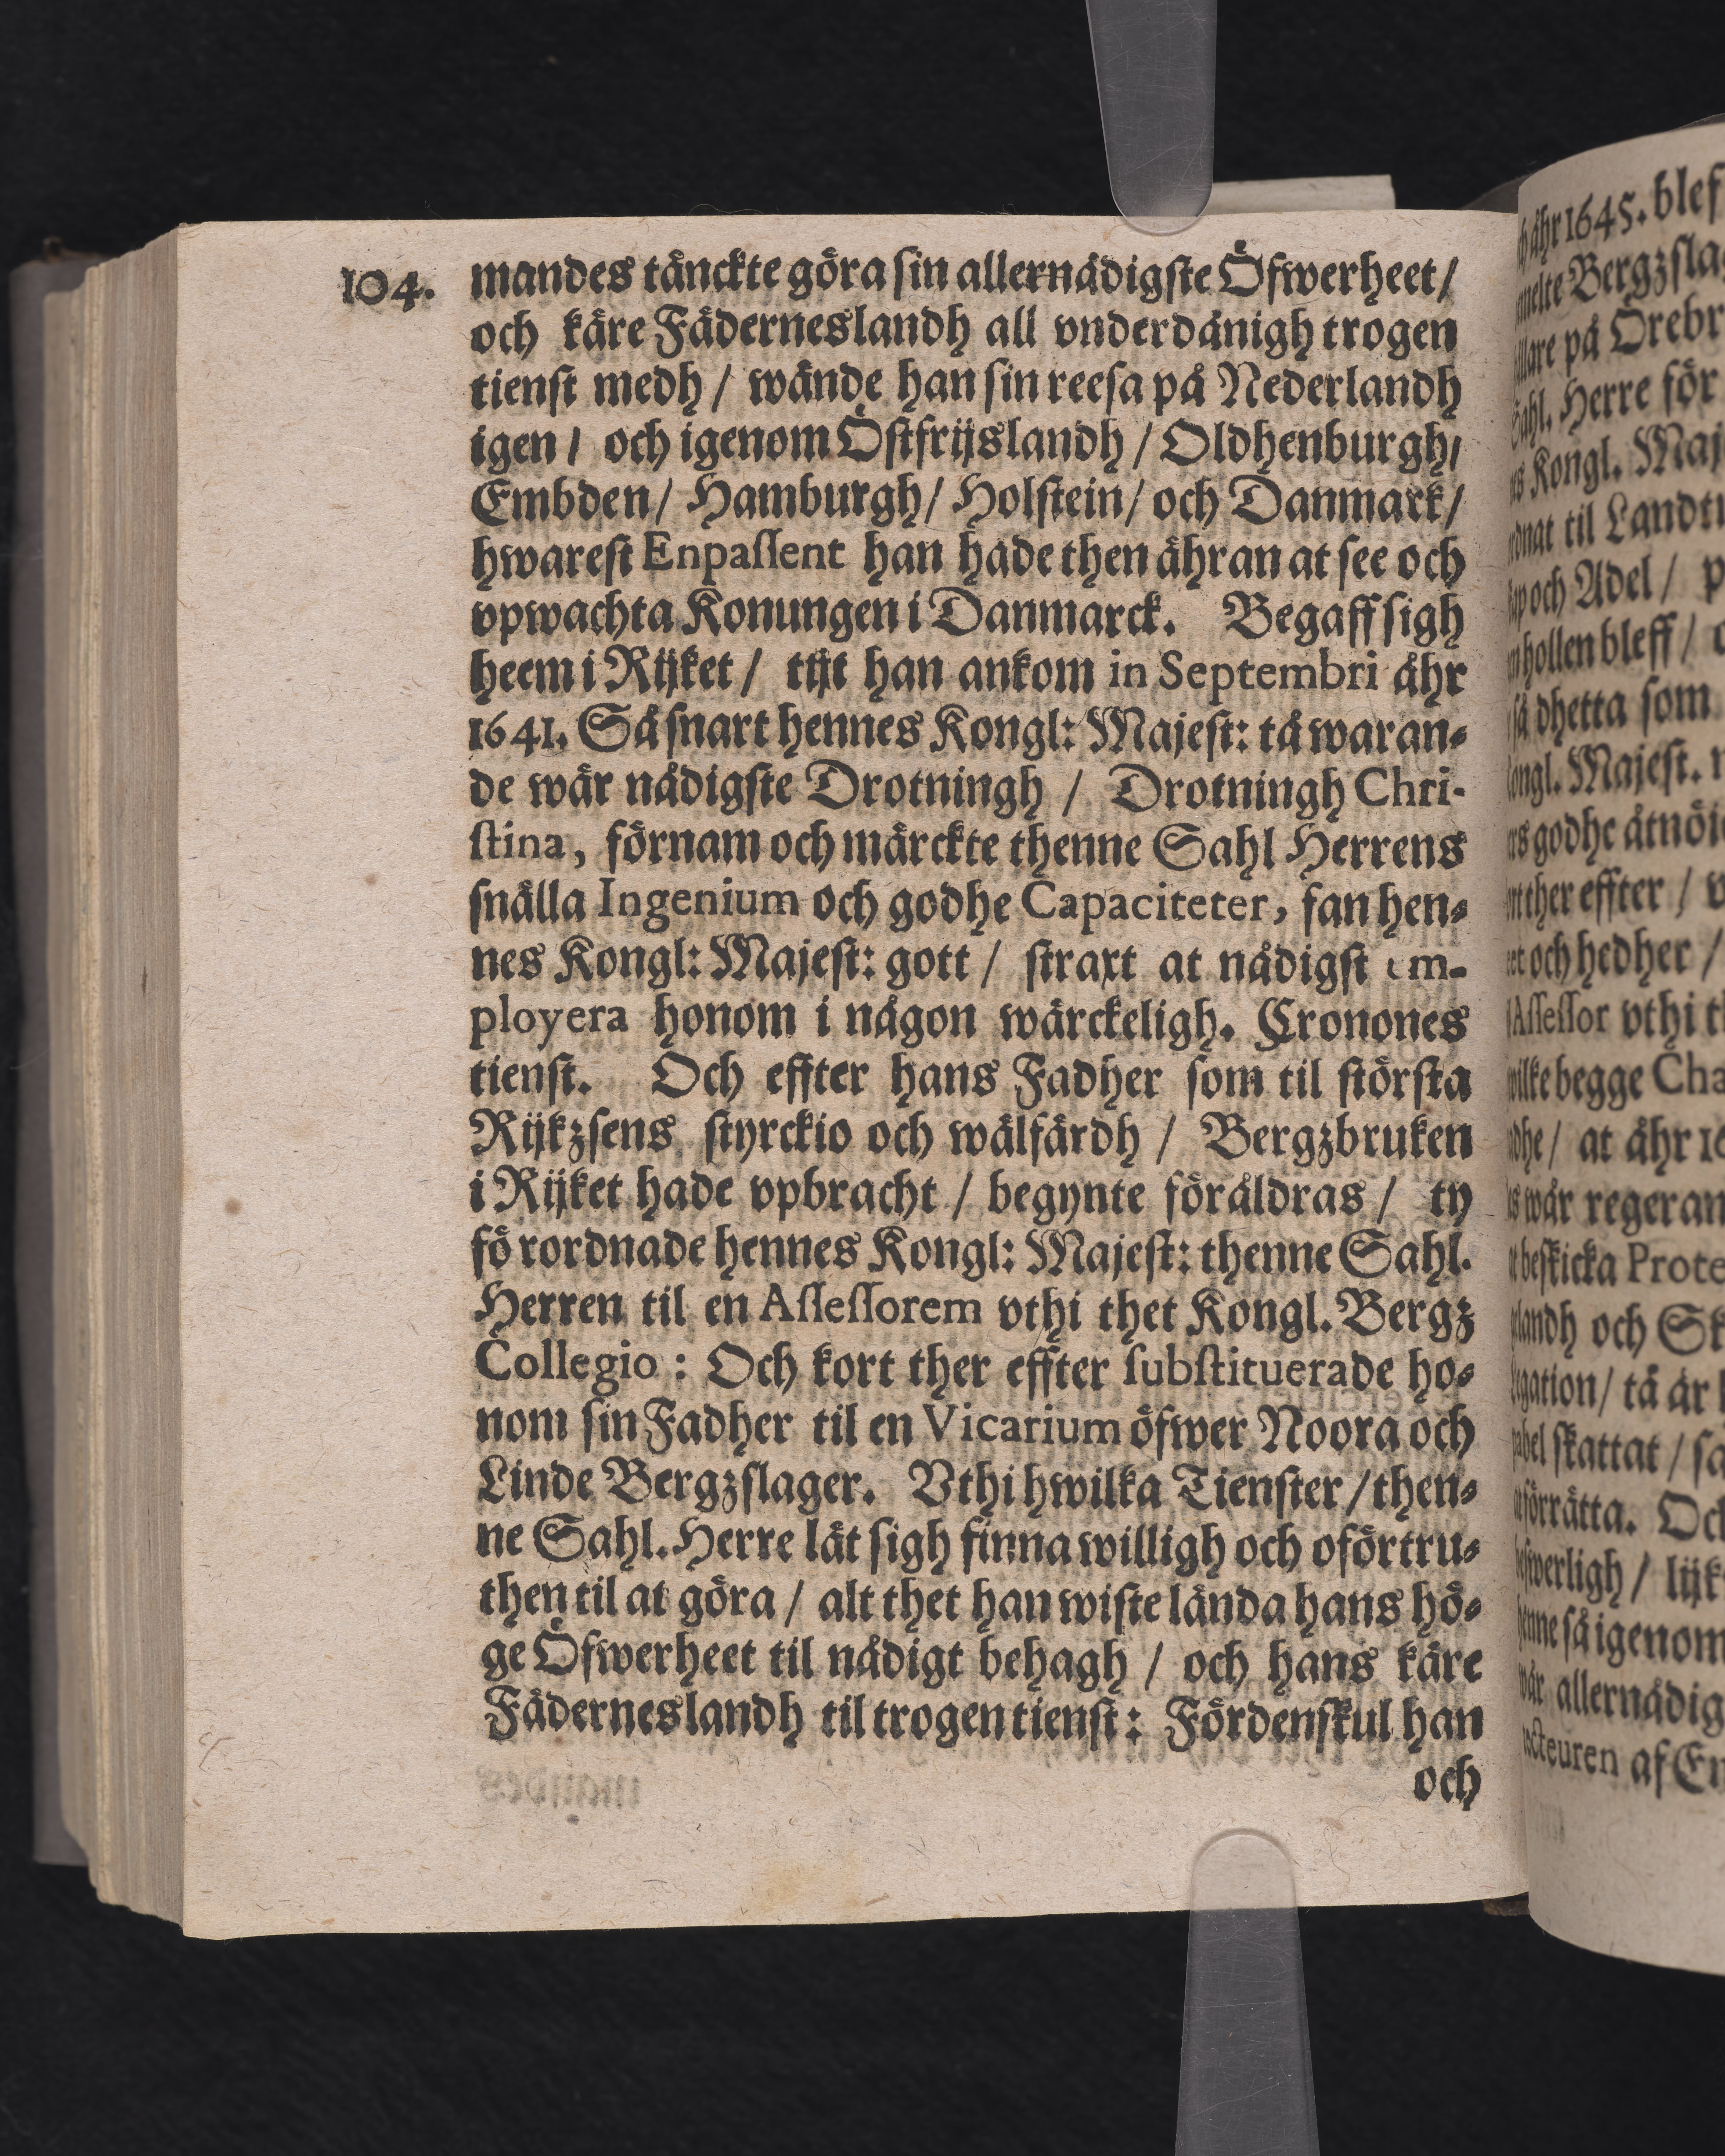 104.
mandes tänckte göra sin allernådigste Öfwerheet/
och käre Fäderneslandh all vnderdånigh trogen
tienst medh / wände han sin reesa på Nederlandh
igen / och igenom Östfrijslandh / Oldhenburgh/
Embden/ Hamburgh/ Holstein/ och Danmark/
hwarest Enpassent han hade then ähran at see och
vpwachta Konungen i Danmarck. Begaff sigh
heem i Rijket / tijt han ankom in Septembri åhr
1641. Så snart hennes Kongl: Majest: tå waran-
de wår nådigste Drotningh / Drotningh Chri-
stina, förnam och märckte thenne Sahl Herrens
snälla Ingenium och godhe Capaciteter, fan hen-
nes Kongl: Majest: gott / straxt at nådigst em-
ployera honom i någon wärckeligh. Cronones
tienst. Och effter hans Fadher som til största
Rijkzsens styrckio och wälfärdh / Bergzbruken
i Rijket hade vpbracht / begynte föråldras / ty
förordnade hennes Kongl: Majest: thenne Sahl.
Herren til en Assessorem vthi thet Kongl. Bergz
Collegio : Och kort ther effter substituerade ho-
nom sin Fadher til en Vicarium öfwer Noora och
Linde Bergzslager. Vthi hwilka Tienster / then-
ne Sahl. Herre lät sigh finna willigh och oförtru-
then til at göra / alt thet han wiste lända hans hö-
ge Öfwerheet til nådigt behagh / och hans käre
Fäderneslandh til trogen tienst: Fördenskul han
och
åhr 1645. blef
Bergzsla
på Örebr
Herre för
Kongl. Maj
til Landt
och Adel / p
hollen bleff /
så dhetta som
Majest.
godhe åtnöi
ther effter / v
och hedher /
Assessor vthi t
begge Cha
at åhr 16
wår regeran
beskicka Prote
och Sk
tå är
skattat / sa
Oc
lijk
så igenom
allernådig
af En